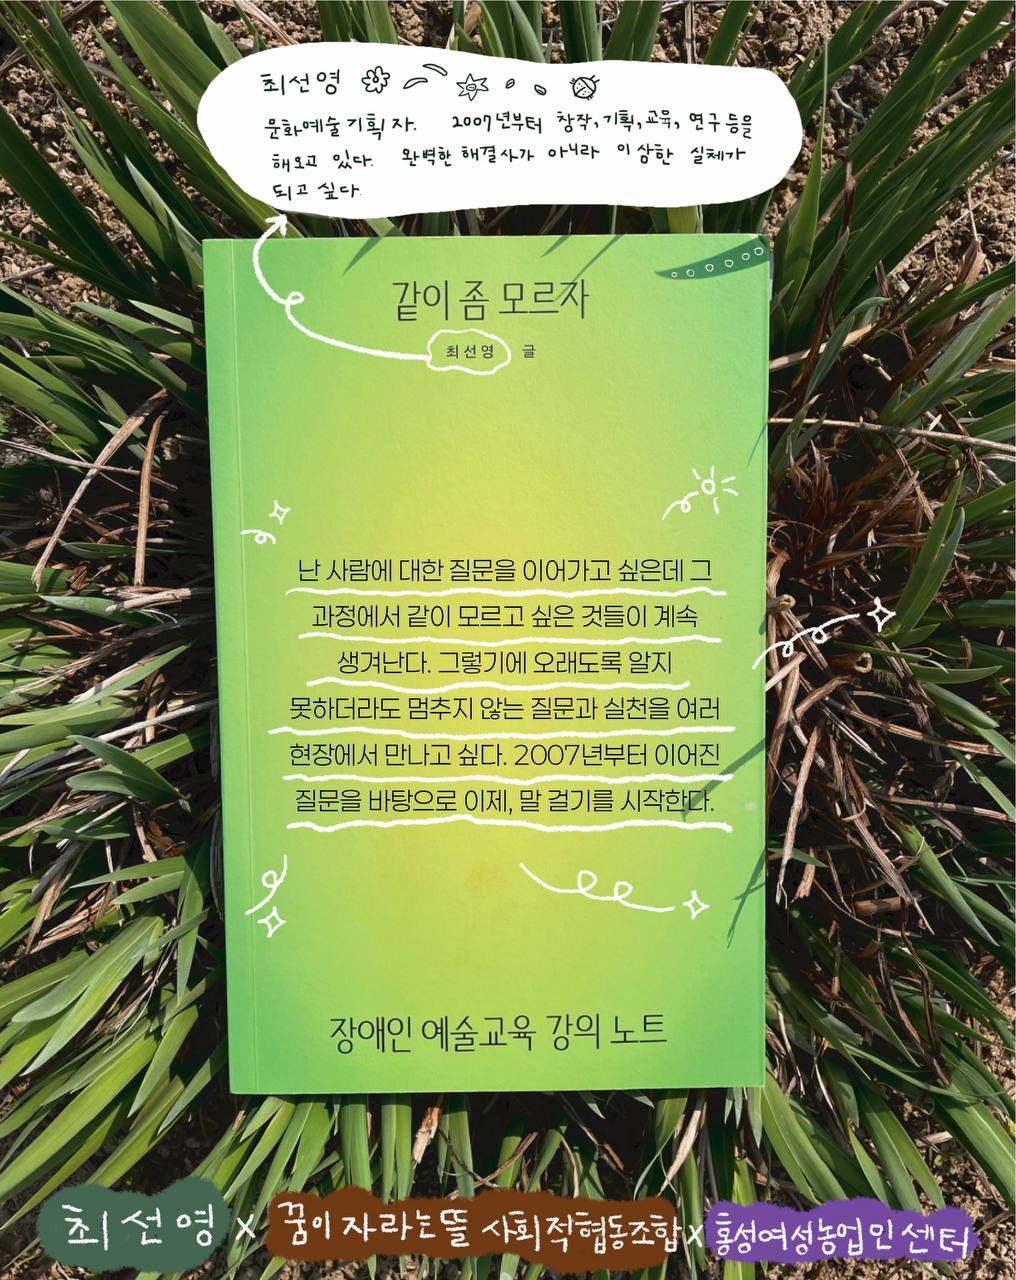 최선영
문화예술기획자. 2007년부터 창작, 기획, 교육, 연구 등을
해오고 있다. 완벽한 해결사가 아니라 이상한 실체가
되고 싶다.
같이 좀 모르자
최선영 글
난 사람에 대한 질문을 이어가고 싶은데 그
과정에서 같이 모르고 싶은 것들이 계속
생겨난다. 그렇기에 오래도록 알지
못하더라도 멈추지 않는 질문과 실천을 여러
현장에서 만나고 싶다. 2007년부터 이어진
질문을 바탕으로 이제, 말 걸기를 시작한다.
장애인 예술교육 강의 노트
최선영 x 꿈이자라는뜰 사회적협동조합 x 홍성여성농업인센터